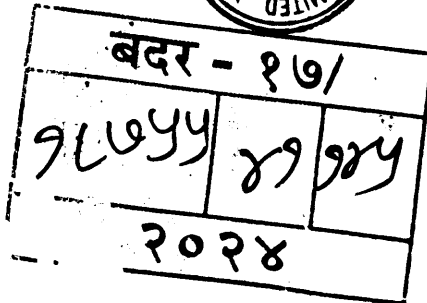 बदर - १७/
१८७५५ ४१ १४५
२०२४